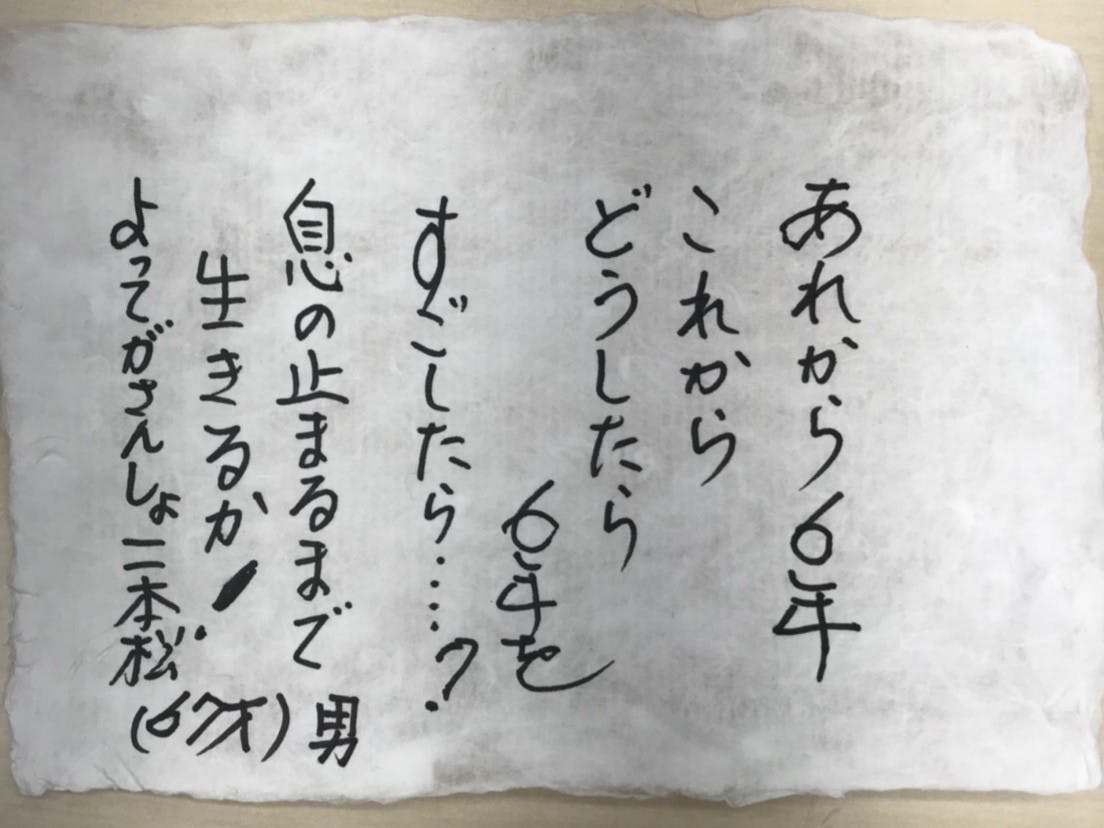 あれから6年
これから
どうしたら
6年を
すごしたら……?
息の止まるまで
生きるか!
よってがさんしょ二本松
(67才)男